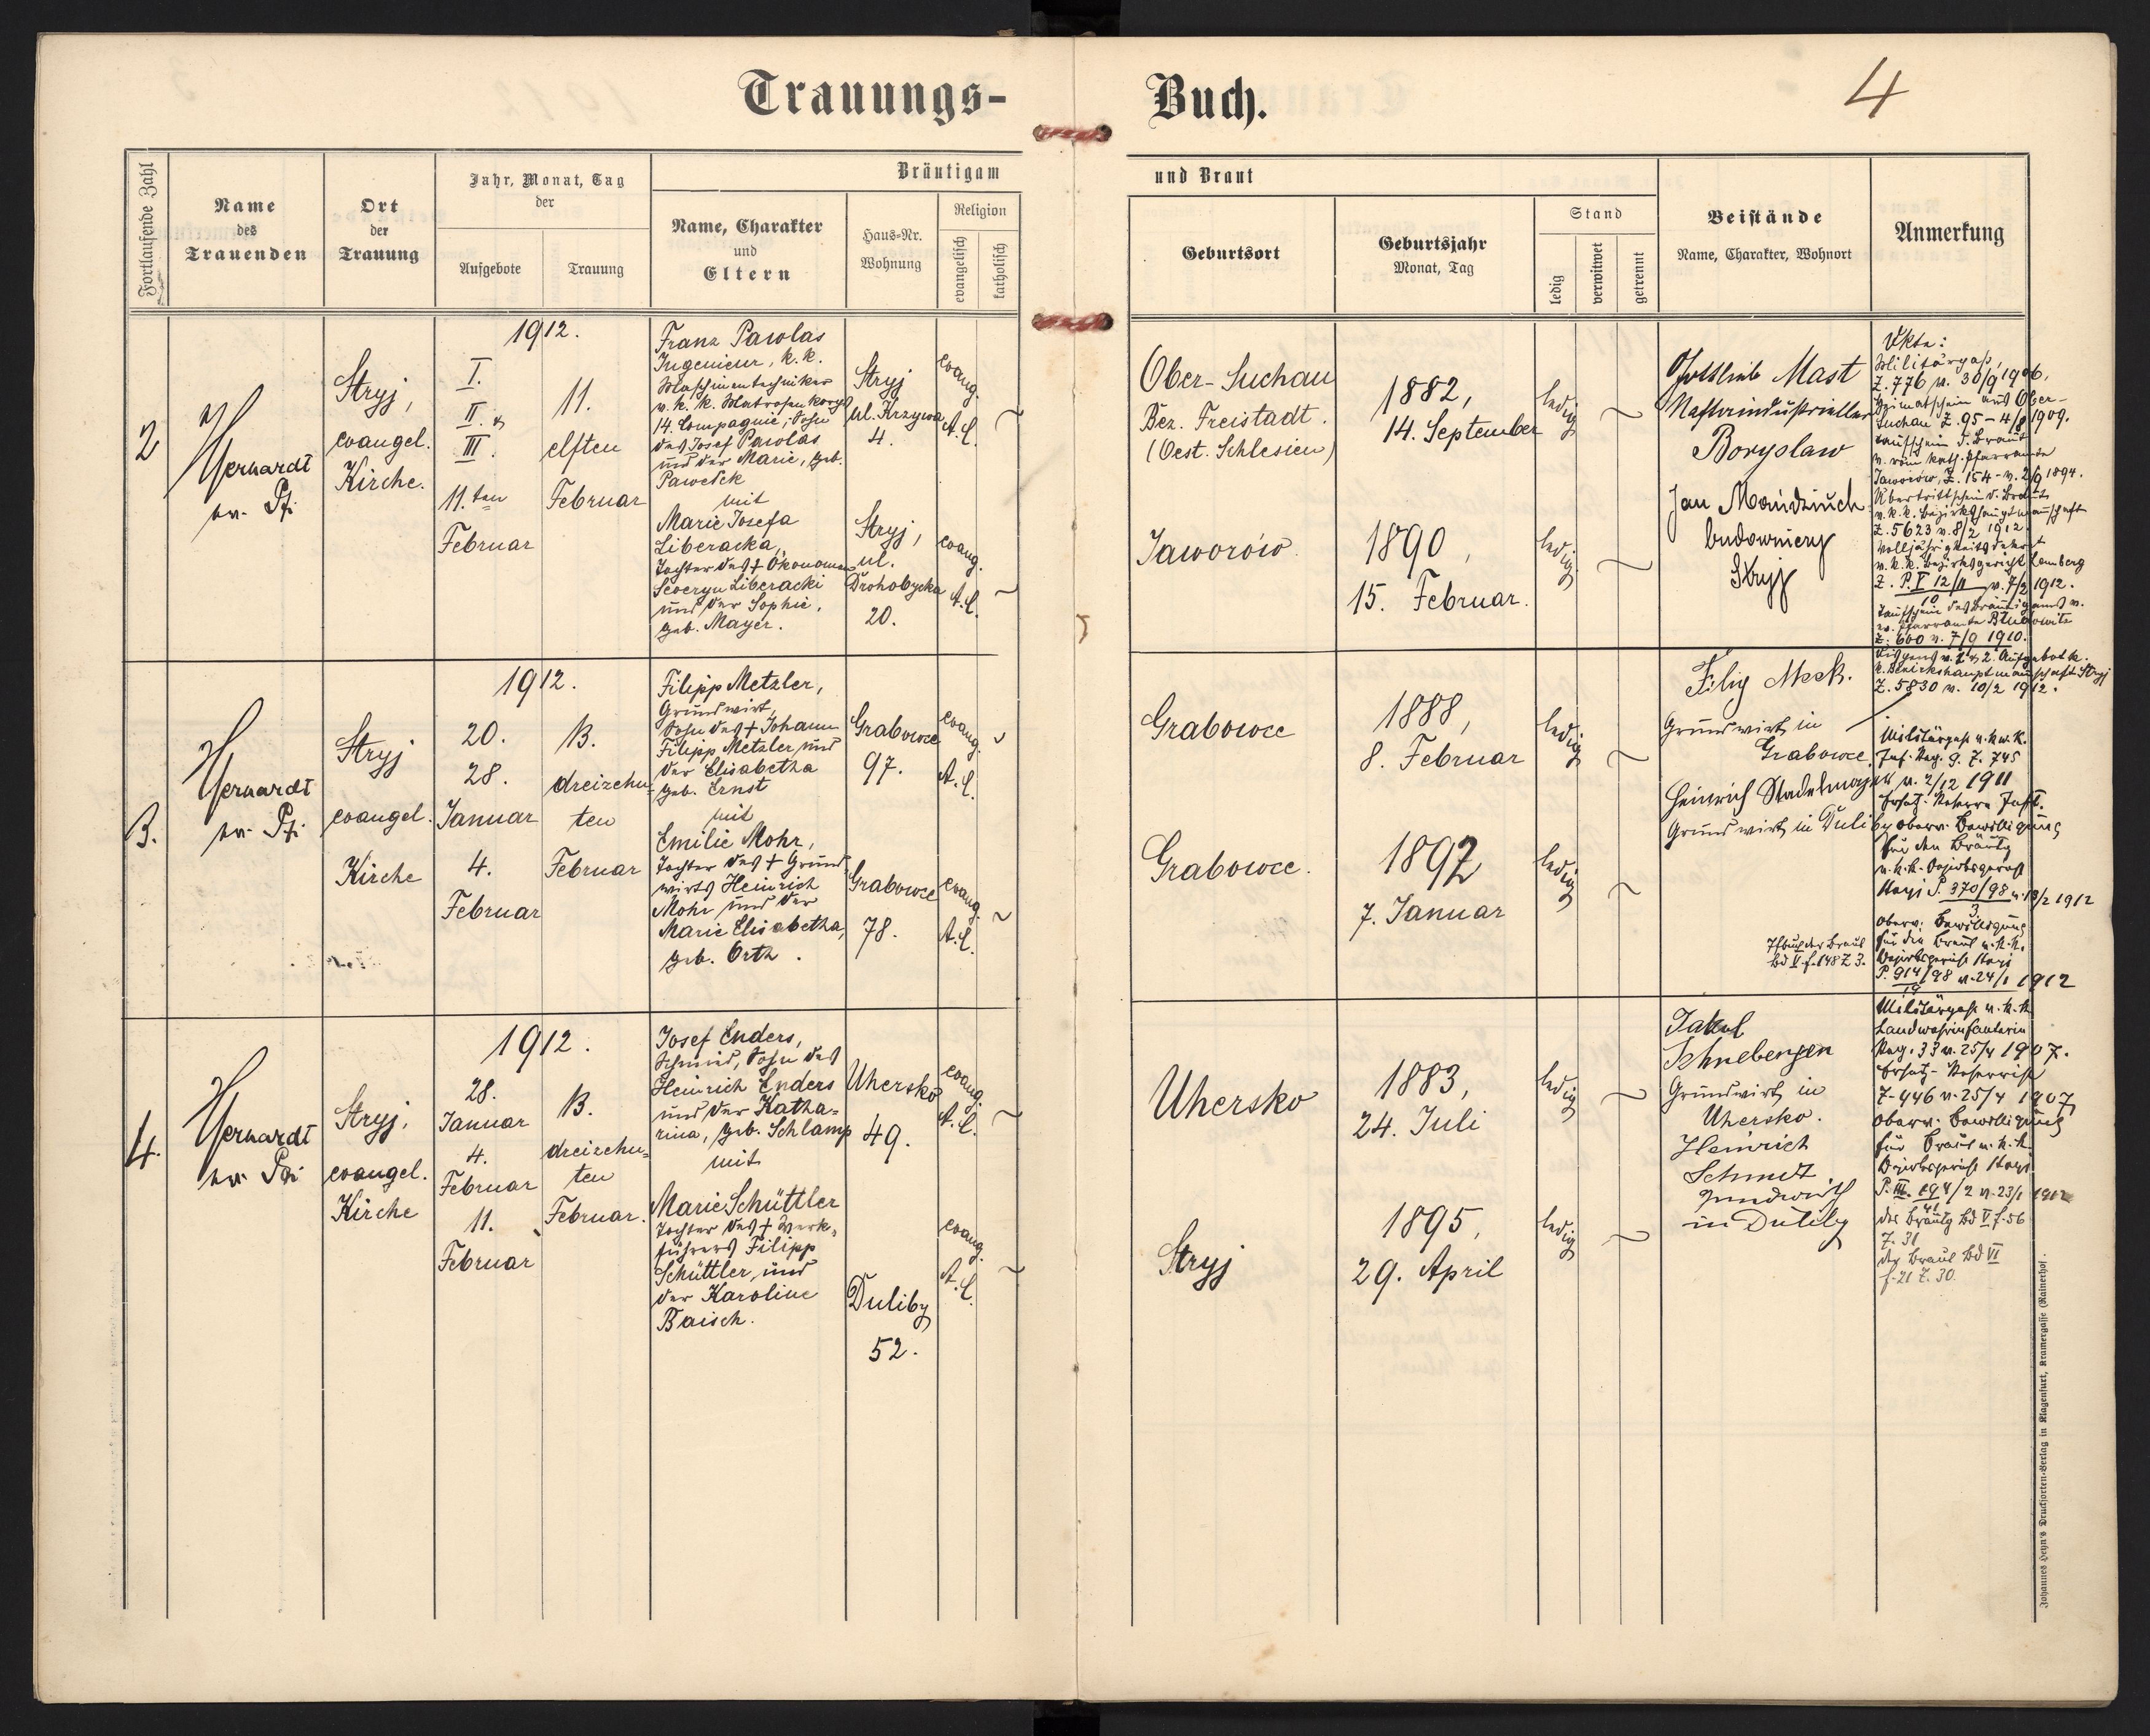 Trauungs-
Buch.
4
Fortlaufende Zahl
Name
des
Trauenden
Ort
der
Trauung
Jahr, Monat, Tag
der
Aufgebote
Trauung
Bräutigam
Name, Charakter
und
Eltern
Haus-Nr.
Wohnung
Religion
evangelisch
katholisch
und Braut
Geburtsort
Geburtsjahr
Monat, Tag
Stand
ledig
verwitwet
getrennt
Beistände
Name, Charakter, Wohnort
Anmerkung
2
Stryj,
evangel.
Kirche.
1912.
I.
II. &
III.
11.ten
Februar
11.
elften
Februar
Franz Pawlas
Ingenieur, k. k.
Maschinentechniker
v. k. k. Matrosenkorps
14. Compagnie, Sohn
des Josef Pawlas
und der Marie, geb.
mit
Marie Josefa
Liberacka,
Tochter des + Ökonomen
Seweryn Liberacki
und der Sophie,
geb. Mayer.
Stryj
ul. Krzywa
4.
Stryj,
ul.
Drohobycka
20.
evang.
A.C.
evang.
A.C.
Ober-Suchau
Bez. Freistadt.
(Oest. Schlesien)
1882,
14. September
ledig
Jaworów.
1890,
15. Februar.
ledig
Gottlieb Mast
Naftaindustrieller
Boryslaw
Jan
budowniczy
Stryj
Akte:
Militärpass,
Z. 776 v. 30/9 1906,
Heimatschein aus Ober-
Suchau Z. 95 – 4/8 1909.
Taufschein d. Braut
v. röm. kath. Pfarramte
Jaworów, Z. 154 – v. 2/9 1894.
Übertrittschein d. Braut
v. k. k. Bezirkshauptmannschaft
Z. 5623 v. 8/2 1912.
Volljährigkeitsdekret
v. k. k. Bezirksgericht Lemberg
Z. P. I 12/11 v. 7/2 1912.
10
Taufschein des Bräutigams v.
ev. Pfarramte Bludowitz
Z. 600 v. 7/9 1910.
Dispens v. 1 & 2. Aufgebot k.
k. Bezirkshauptmannschaft Stryj
Z. 5830 v. 10/2 1912.
3.
Stryj
evangel.
Kirche
1912.
20.
28.
Januar
4.
Februar
13.
dreizehn-
ten
Februar
Filipp Metzler,
Grundwirt,
Sohn des + Johann
Filipp Metzler und
der Elisabetha
geb. Ernst
mit
Emilie Mohr,
Tochter des + Grund-
wirts Heinrich
Mohr und der
Marie Elisabetha,
geb. Orth.
Grabowce
97.
Grabowce
78.
evang.
A.C.
evang.
A.C.
Grabowce
1888,
8. Februar
ledig
Grabowce.
1892
7. Januar
ledig
Filip Meck.
Grundwirt in
Grabowce
Heinrich Stadelmayer
Grundwirt in Duliby
Tfbuch der Braut
Bd V f. 148 Z 3.
Militärpass v. k. u. k.
Inf. Reg. 9. Z. 745
v. 2/12 1911
Ersatz-Reserve Inft.
oberv. Bewilligung
für den Bräutg
v. k. k. Bezirksgericht
Stryj P. 370/98 v. 13/2 1912
3
oberv. Bewilligung
für die Braut v. k. k.
Bezirksgericht Stryj
P. 914/98 v. 24/1 1912
4.
Stryj,
evangel.
Kirche
1912.
28.
Januar
4.
Februar
11.
Februar
13.
dreizehn-
ten
Februar.
Josef Enders,
Schmied, Sohn des
Heinrich Enders
und der Katha-
rina, geb. Schlamp
mit
Marie Schüttler
Tochter des + Werk-
führers Filipp
Schüttler, und
der Karoline
Baisch.
Uhersko
49.
Duliby
52.
evang.
A.C.
evang.
A.C.
Uhersko
1883,
24. Juli
ledig
Stryj
1895,
29. April
ledig
Jakob
Grundwirt in
Uhersko.
Heinrich
Schmidt
Grundwirth
in Duliby
Militärpass v. k. k.
Landwehrinfanterie
Reg. 33 v. 25/4 1907.
Ersatz-Reservist
Z. 446 v. 25/4 1907
oberv. Bewilligung
für Braut v. k. k.
Bezirksgericht Stryj
P. III. 194/2 v. 23/1 1912
41
des Bräutg Bd V f. 56
Z. 31
der Braut Bd VI
f. 21 Z. 30.
Johannes Heyn's Drucksorten-Verlag in Klagenfurt, Kramergasse (Rainerhof.